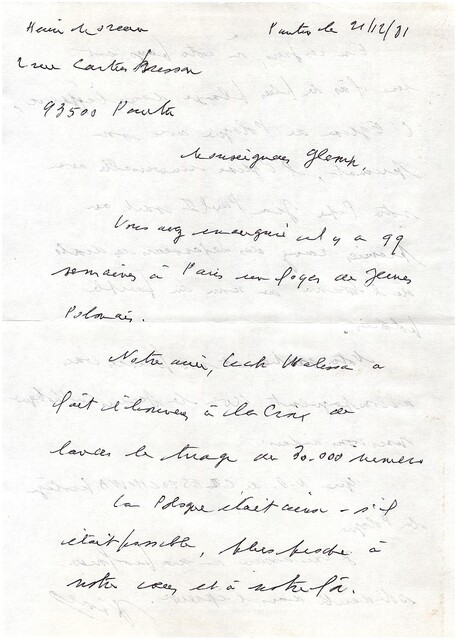 Pantin le 21/12/81
2 rue Cartier Bresson
93500 Pantin
Monseigneur Glemp,
Vous avez inauguré il y a 99
semaines à Paris un foyer de Jeunes
Polonais.
Notre ami, Lech Walesa a
fait à la Croix de
le tirage de 30.000 numéros
La Pologne était ainsi - s'il
était possible, plus proche à
notre cœur et à notre foi.